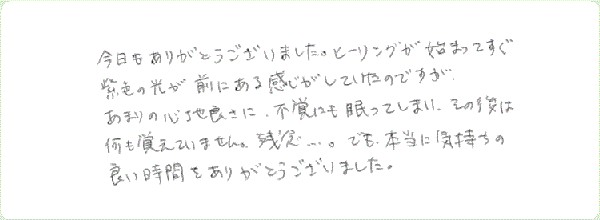 今日もありがとうございました。ヒーリングが始まってすぐ
紫色の光が前にある感じがしていたのですが、
あまりの心地良さに、不覚にも眠ってしまい、その後は
何も覚えていません。残念…。でも、本当に気持ちの
良い時間をありがとうございました。